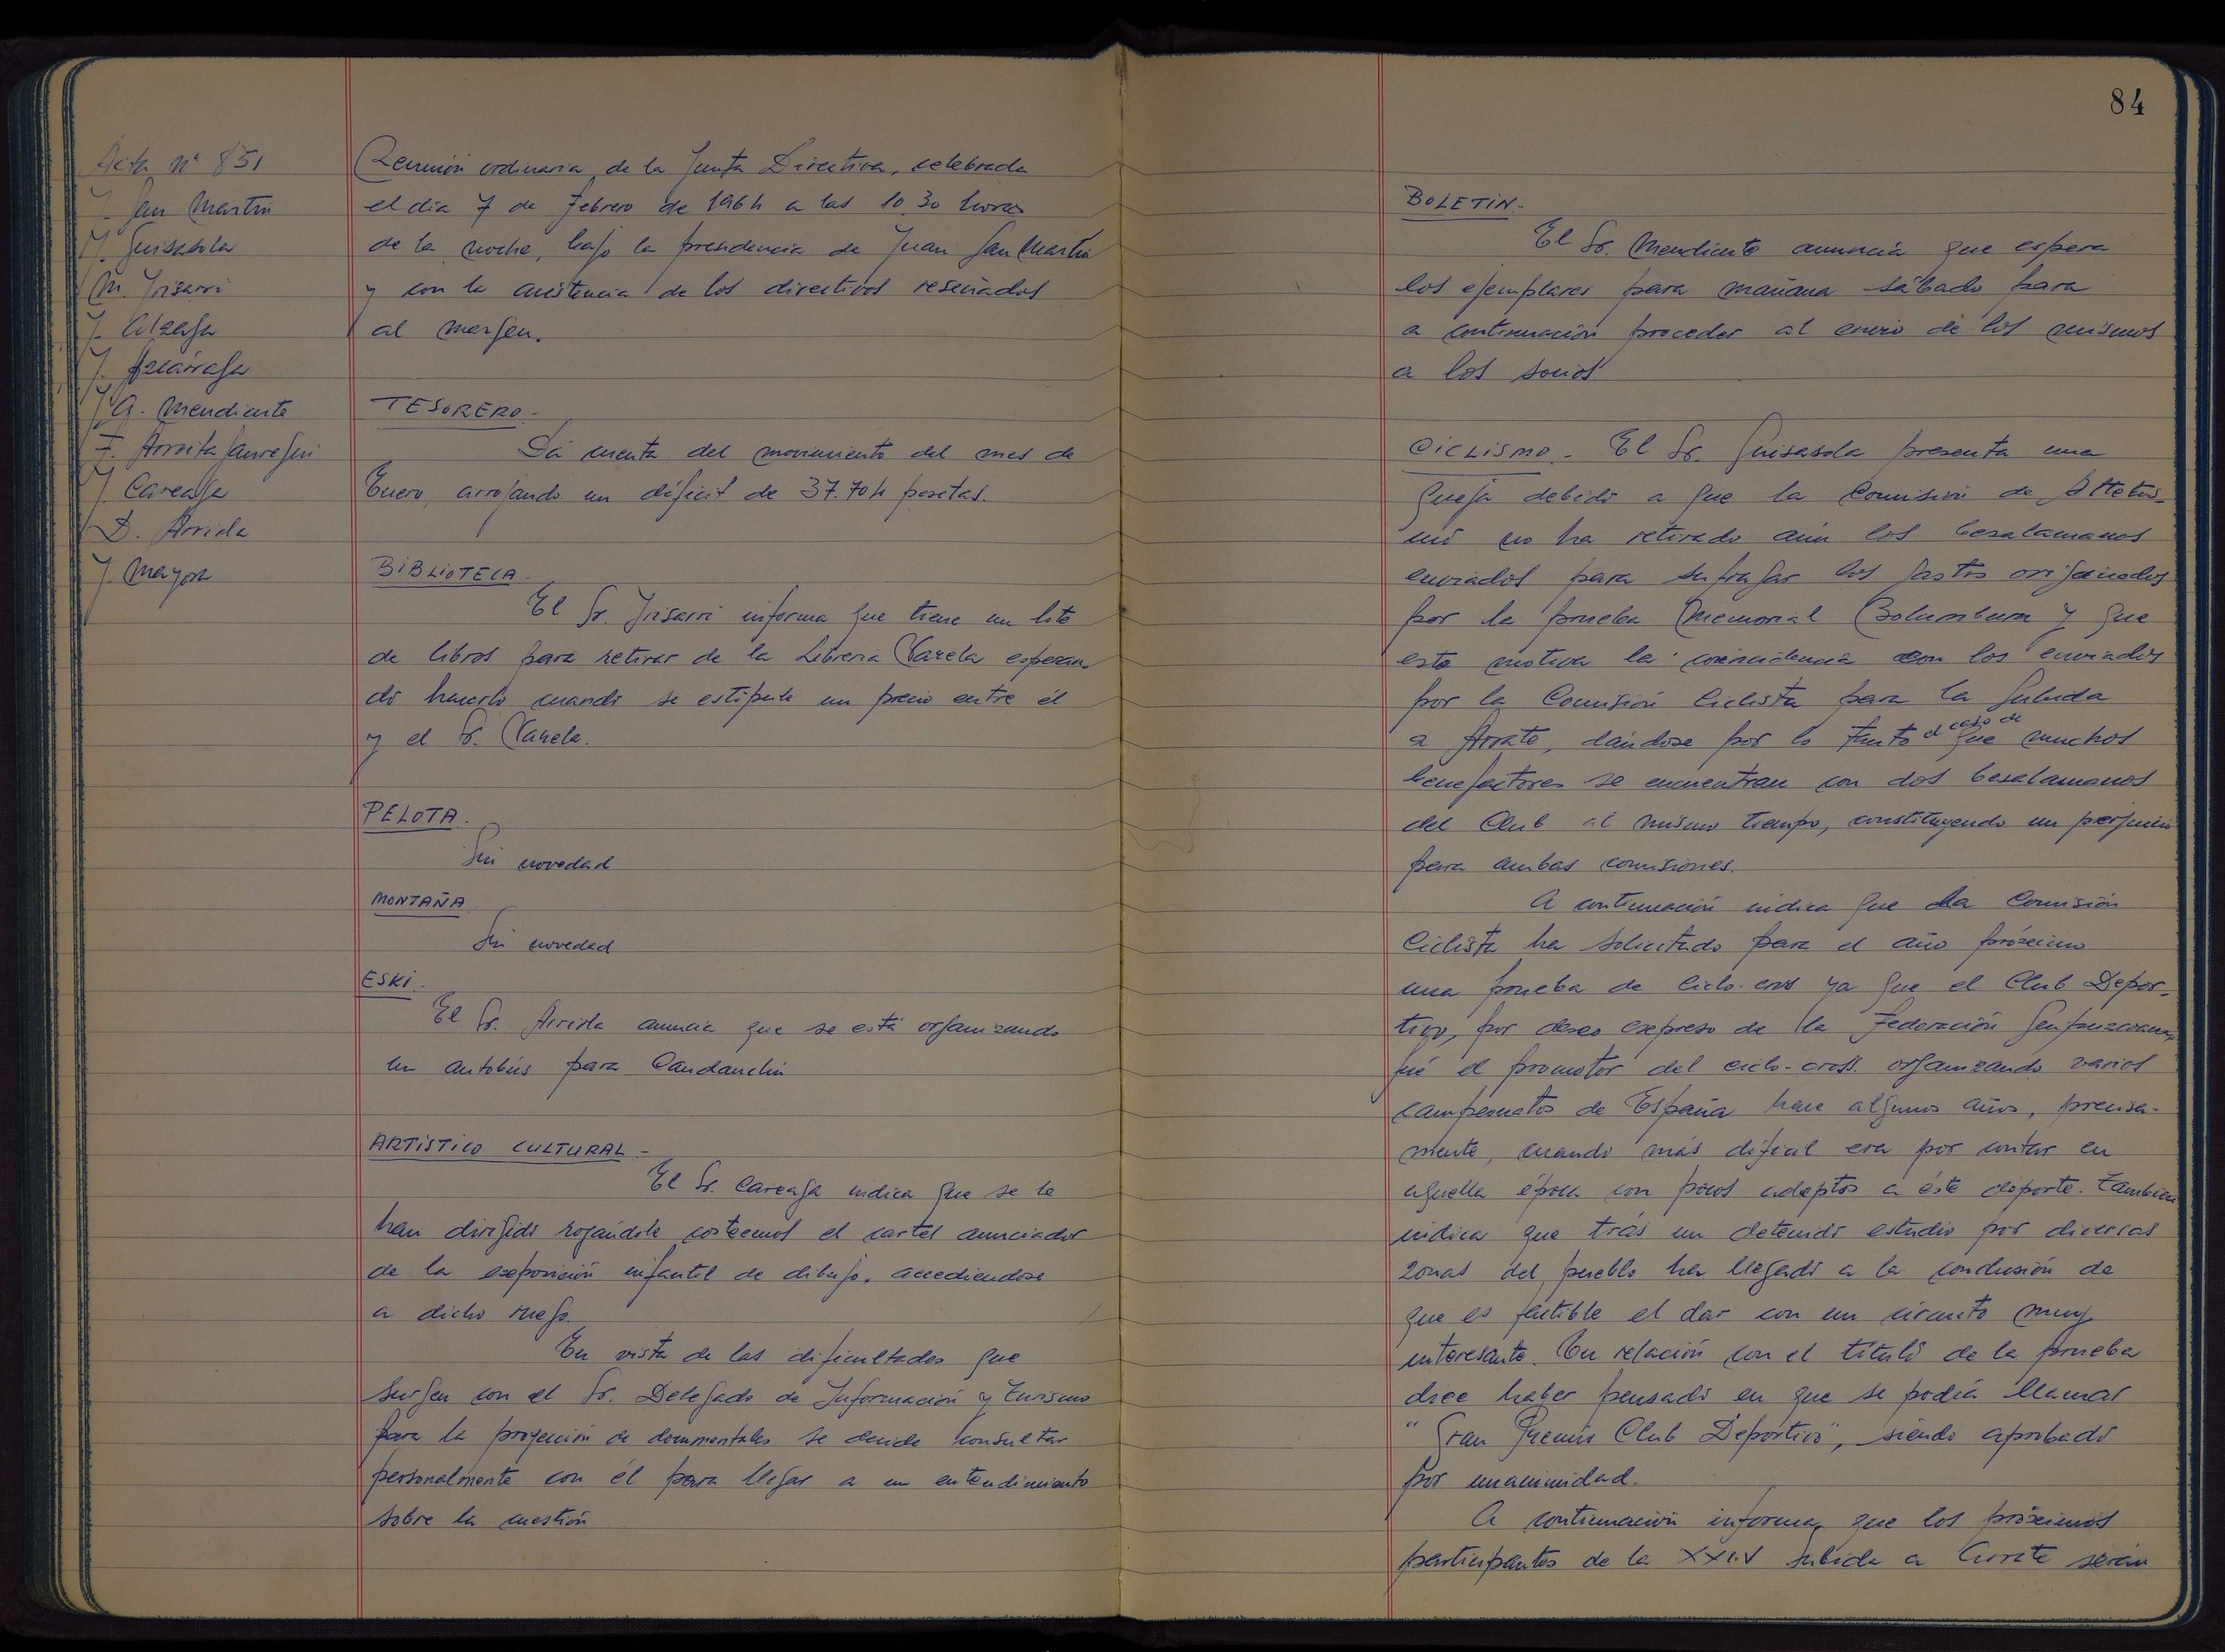 Acta nº 851
J. San Martin
J. Guisasola
M. Irisarri
J. Alzaga
J. Azcárraga
J. A. Mendicute
F. Arreitaunregui
J. Careaga
D. Arriola
J. Mayora
Reunión ordinaria de la Junta Directiva, celebrada
el dia 7 de Febrero de 1964 a las 10,30 horas
de la noche, bajo la presidencia de Juan San Martin
y con la asistencia de los directivos reseñados
al margen.
TESORERO.-
Dá cuenta del movimiento del mes de
Enero, arrojando un déficit de 37.704 pesetas.
BIBLIOTECA.
El Sr. Irisarri informa que tiene un lote
de libros para retirar de la Libreria Varela esperan
do hacerlo cuando se estipule un precio entre él
y el Sr. Varela.
PELOTA.
Sin novedad
MONTAÑA
Sin novedad
ESKI.
El Sr. Arriola anuncia que se está organizando
un autobús para Candanchú
ARTISTICO CULTURAL.-
El Sr. Careaga indica que se le
han dirigido rogándole costeemos el cartel anunciador
de la exposición infantil de dibujo, accediendose
a dicho ruego.
En vista de las dificultades que
surgen con el Sr. Delegado de Información y Turismo
para la proyección de documentales se decide consultar
personalmente con él para llegar a un entendimiento
sobre la cuestión
84
BOLETIN.-
El Sr. Mendicute anuncia que espera
los ejemplares para mañana sábado para
a continuación proceder al envio de los mismos
a los socios
CICLISMO.- El Sr. Guisasola presenta una
queja debido a que la Comisión de Atletis-
mo no ha retirado aún los besalamanos
enviados para sufragar los gastos originados
por la prueba Memorial Bolumburu y que
esto motiva la coincidencia con los enviados
por la Comisión Ciclista para la subida
a Arrate, dándose por lo tanto el caso de que muchos
benefactores se encuentran con dos besalamanos
del Club al mismo tiempo, constituyendo un perjuicio
para ambas comisiones.
A continuación indica que la Comisión
Ciclista ha solicitado para el año próximo
una prueba de Ciclo-cros ya que el Club Depor-
tivo, por deseo expreso de la Federación Guipuzcoana,
fué el promotor del ciclo-cross. organizando varios
campeonatos de España hace algunos años, precisa-
mente, cuando más dificil era por contar en
aquella época con pocos adeptos a éste deporte. También
indica que trás un detenido estudio por diversas
zonas del pueblo ha llegado a la conclusión de
que es factible el dar con un circuito muy
interesante. En relación con el título de la prueba
dice haber pensado en que se podía llamar
"Gran Premio Club Deportivo", siendo aprobado
por unanimidad.
A continuación informa, que los próximos
participantes de la XXIV subida a Arrate serán